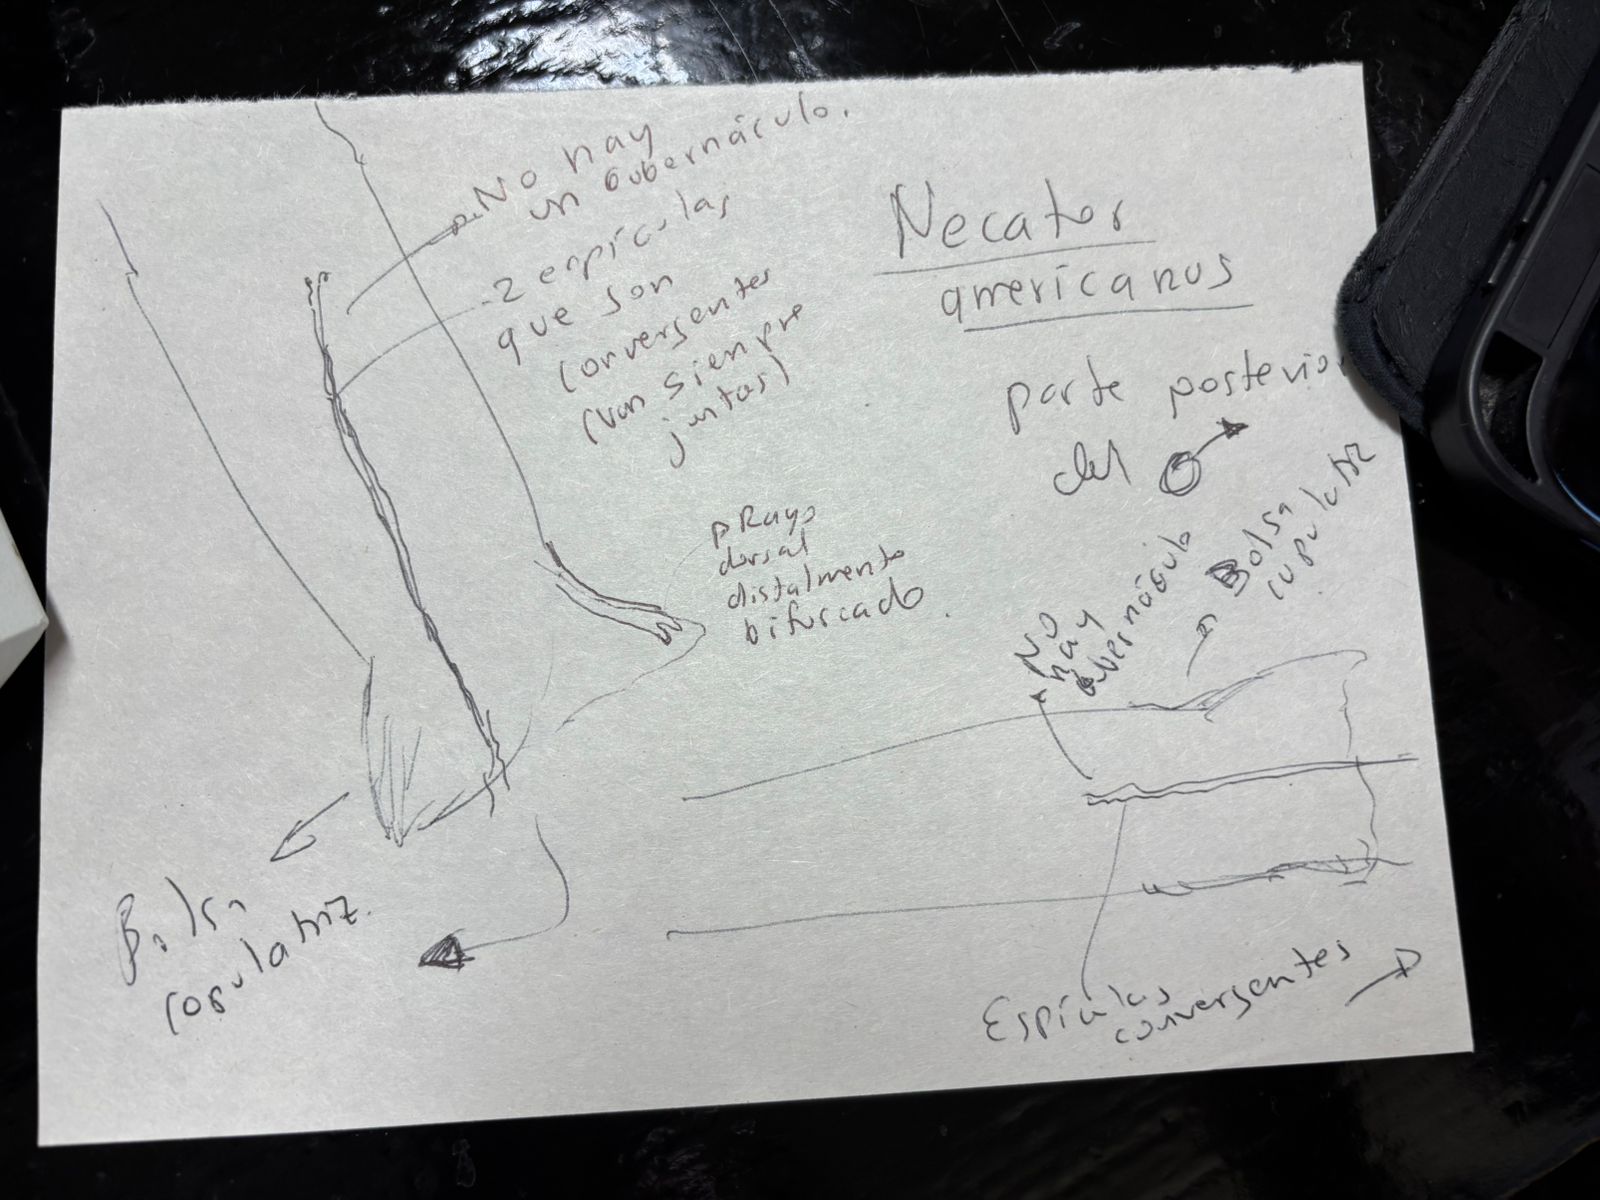 No hay
un Gubernáculo.
-2 espículas
que son
convergentes
(van siempre
juntas)
Necator
americanus
parte posterior
del ♂
Rayo
dorsal
distalmente
bifurcado.
No
hay
Gubernáculo
Bolsa
copulatriz
Bolsa
copulatriz.
Espículas
convergentes